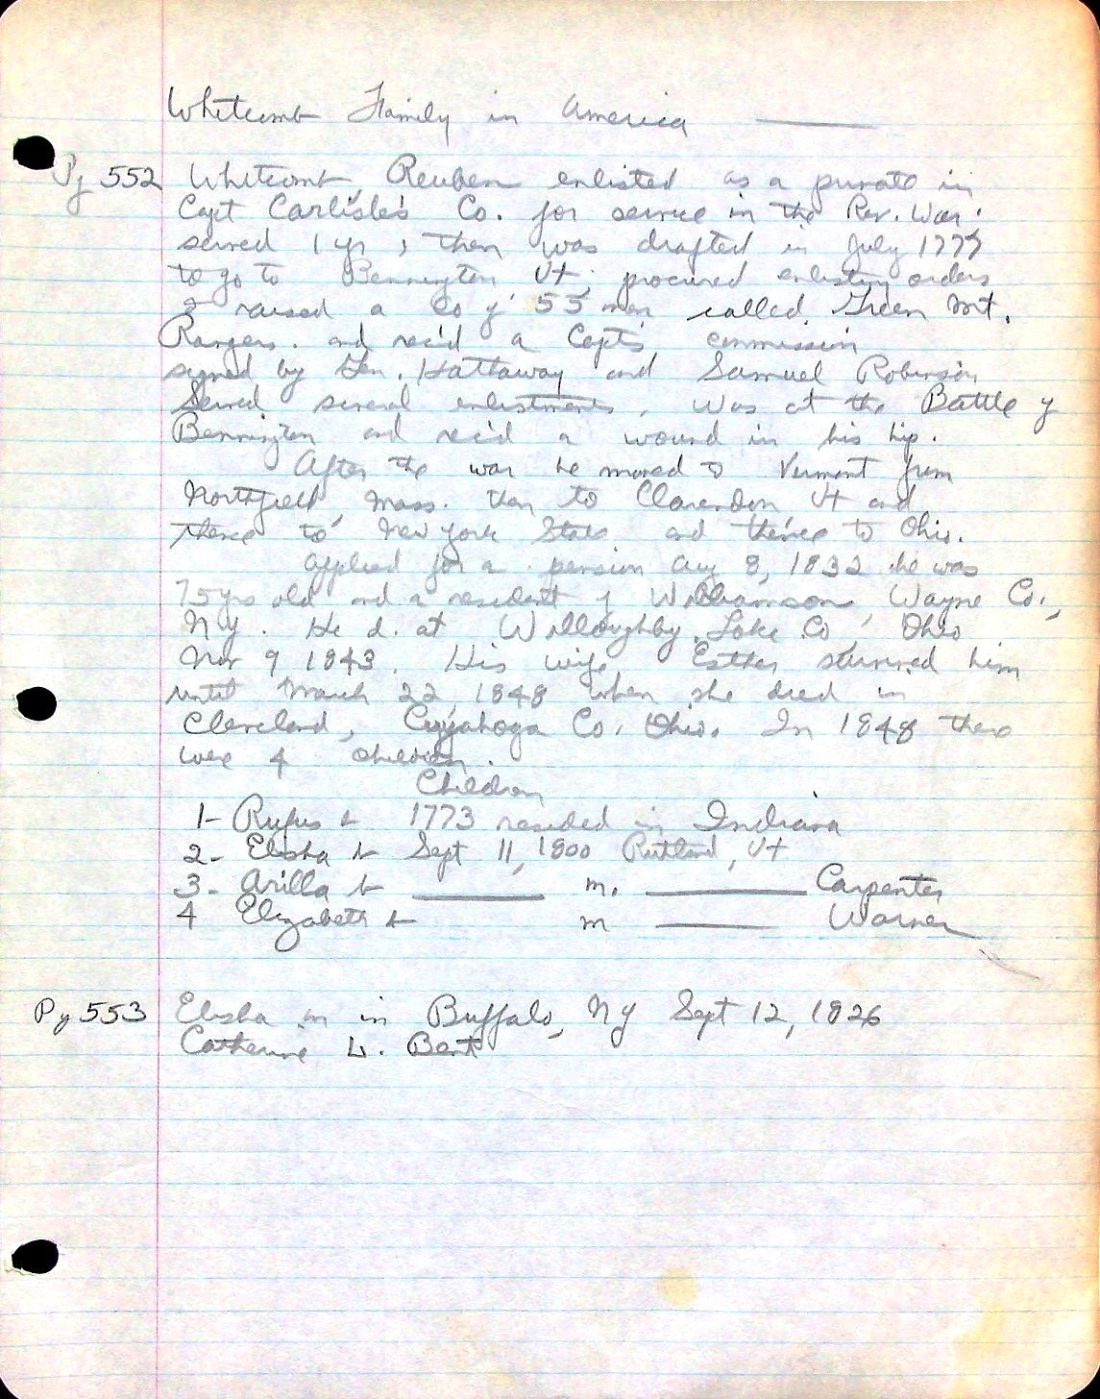 Whitcomb Family in America
Pg 552 Whitcomb, Reuben enlisted as a private in
Capt Carlisle's Co. for service in the Rev. War.
served 1 yr, then was drafted in July 1777
to go to Bennington Vt; procured enlisting orders
& raised a Co of 55 men called Green Mt.
Rangers. and rec'd a Capt's commission
signed by Gen. Hattaway and Samuel Robinson
Served several enlistments, was at the Battle of
Bennington and rec'd a wound in his hip.
After the war he moved to Vermont from
Northfield, Mass. then to Clarendon Vt and
thence to New York State and thence to Ohio.
Applied for a pension Aug 8, 1832 he was
75 yrs old and a resident of Williamson, Wayne Co.,
N.Y. He d. at Willoughby, Lake Co, Ohio
Nov 9 1843. His wife, Esther survived him
until March 22, 1848 when she died in
Cleveland, Cuyahoga Co. Ohio. In 1848 there
were 4 children.
Children
1- Rufus b 1773 resided in Indiana
2- Elisha b Sept 11, 1800 Rutland, Vt
3- Arilla b m. Carpenter
4 Elizabeth b m Warner
Pg 553 Elisha m in Buffalo, NY Sept 12, 1826
Catherine